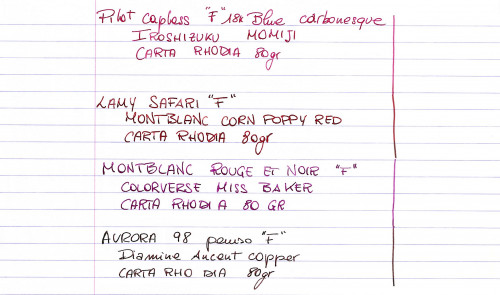 Pilot capless "F" 18k Blue carbonesque
IROSHIZUKU MOMIJI
CARTA RHODIA 80gr
LAMY SAFARI "F"
MONTBLANC CORN POPPY RED
CARTA RHODIA 80gr
MONTBLANC ROUGE ET NOIR "F"
COLORVERSE MISS BAKER
CARTA RHODIA 80 GR
AURORA 98 penso "F"
Diamine Ancent copper
CARTA RHODIA 80gr